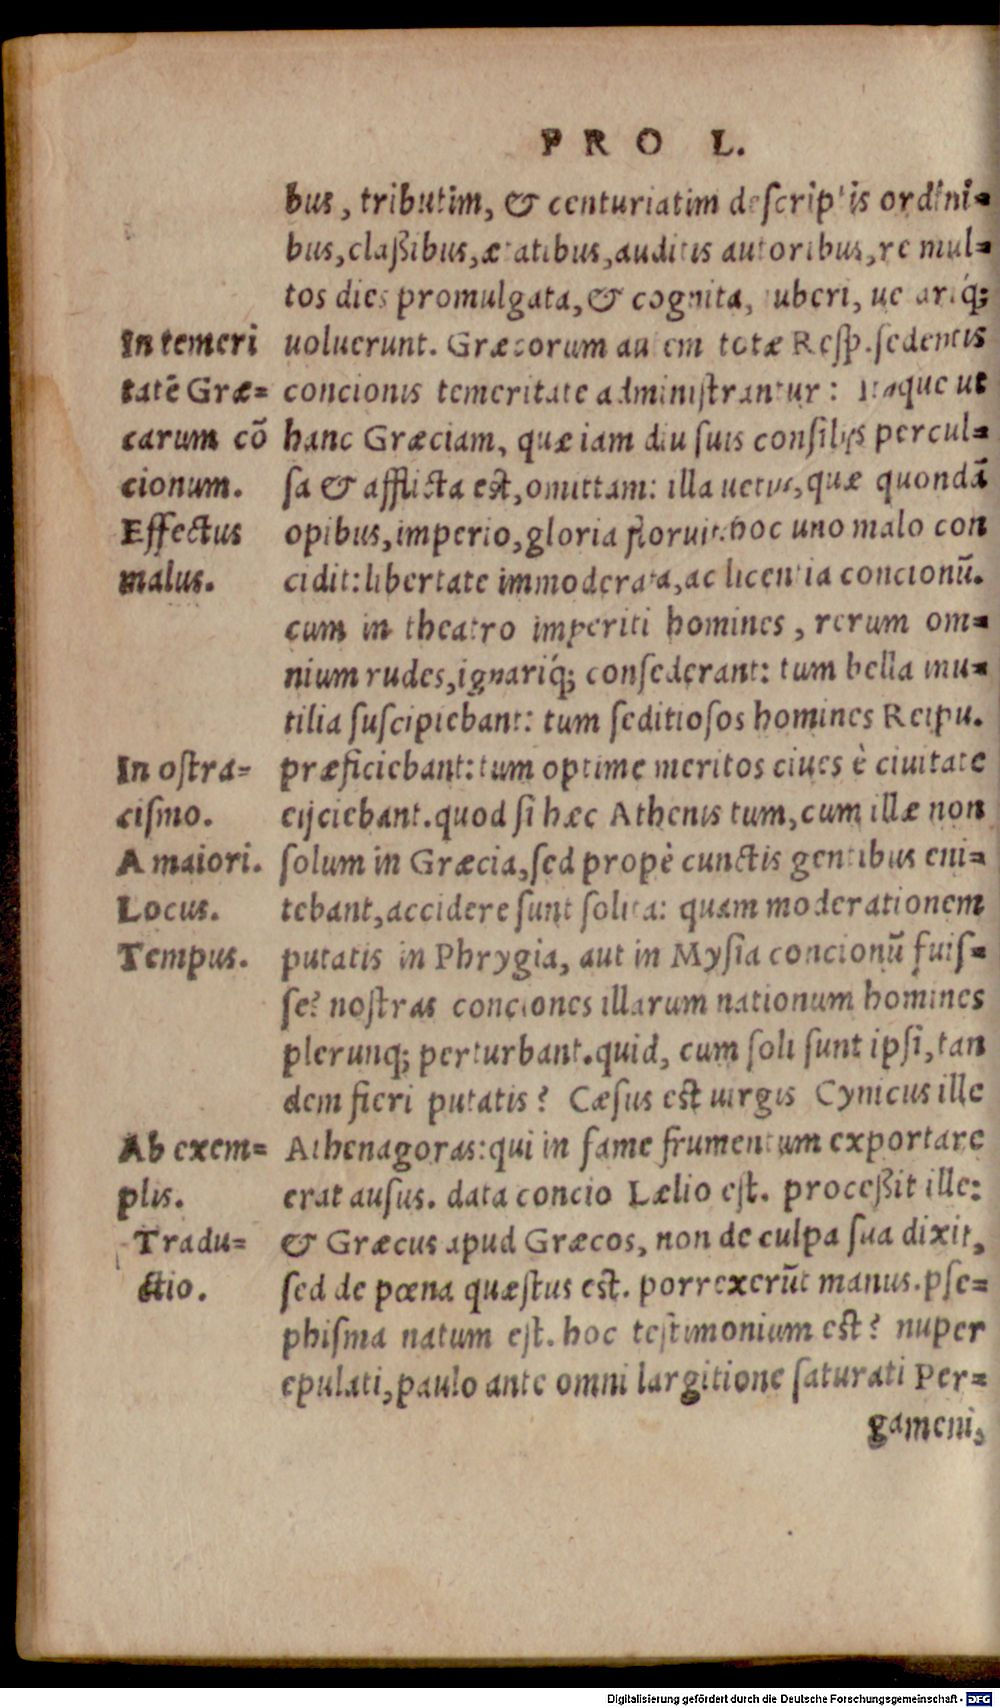 PRO L.
bus, tributim, & centuriatim descriptis ordini-
bus, claßibus, ætatibus, auditis autoribus, re mul-
tos dies promulgata, & cognita, iuberi, uetariq́;
uoluerunt. Græcorum autem totæ Resp. sedentis
concionis temeritate administrantur: Itaque ut
hanc Græciam, quæ iam diu suis consilijs percul-
sa & afflicta est, omittam: illa uetus, quæ quondã
opibus, imperio, gloria floruit. hoc uno malo con
cidit: libertate immoderata, ac licentia concionũ.
cum in theatro imperiti homines, rerum om-
nium rudes, ignariq́; consederant: tum bella inu-
tilia suscipiebant: tum seditiosos homines Reipu.
præficiebant: tum optime meritos ciues è ciuitate
eijciebant. quod si hæc Athenis tum, cum illæ non
solum in Græcia, sed propè cunctis gentibus eni-
tebant, accidere sunt solita: quam moderationem
putatis in Phrygia, aut in Mysia concionũ fuis-
se? nostras conciones illarum nationum homines
plerunq; perturbant. quid, cum soli sunt ipsi, tan
dem fieri putatis? Cæsus est uirgis Cymeus ille
Athenagoras: qui in fame frumentum exportare
erat ausus. data concio Lælio est. proceßit ille:
& Græcus apud Græcos, non de culpa sua dixit,
sed de pœna quæstus est. porrexerũt manus. pse-
phisma natum est. hoc testimonium est? nuper
epulati, paulo ante omni largitione saturati Per-
gameni,
In temeri
tatẽ Græ-
carum cõ
cionum.
Effectus
malus.
In ostra-
cismo.
A maiori.
Locus.
Tempus.
Ab exem-
plis.
Tradu-
ctio.
Digitalisierung gefördert durch die Deutsche Forschungsgemeinschaft - DFG